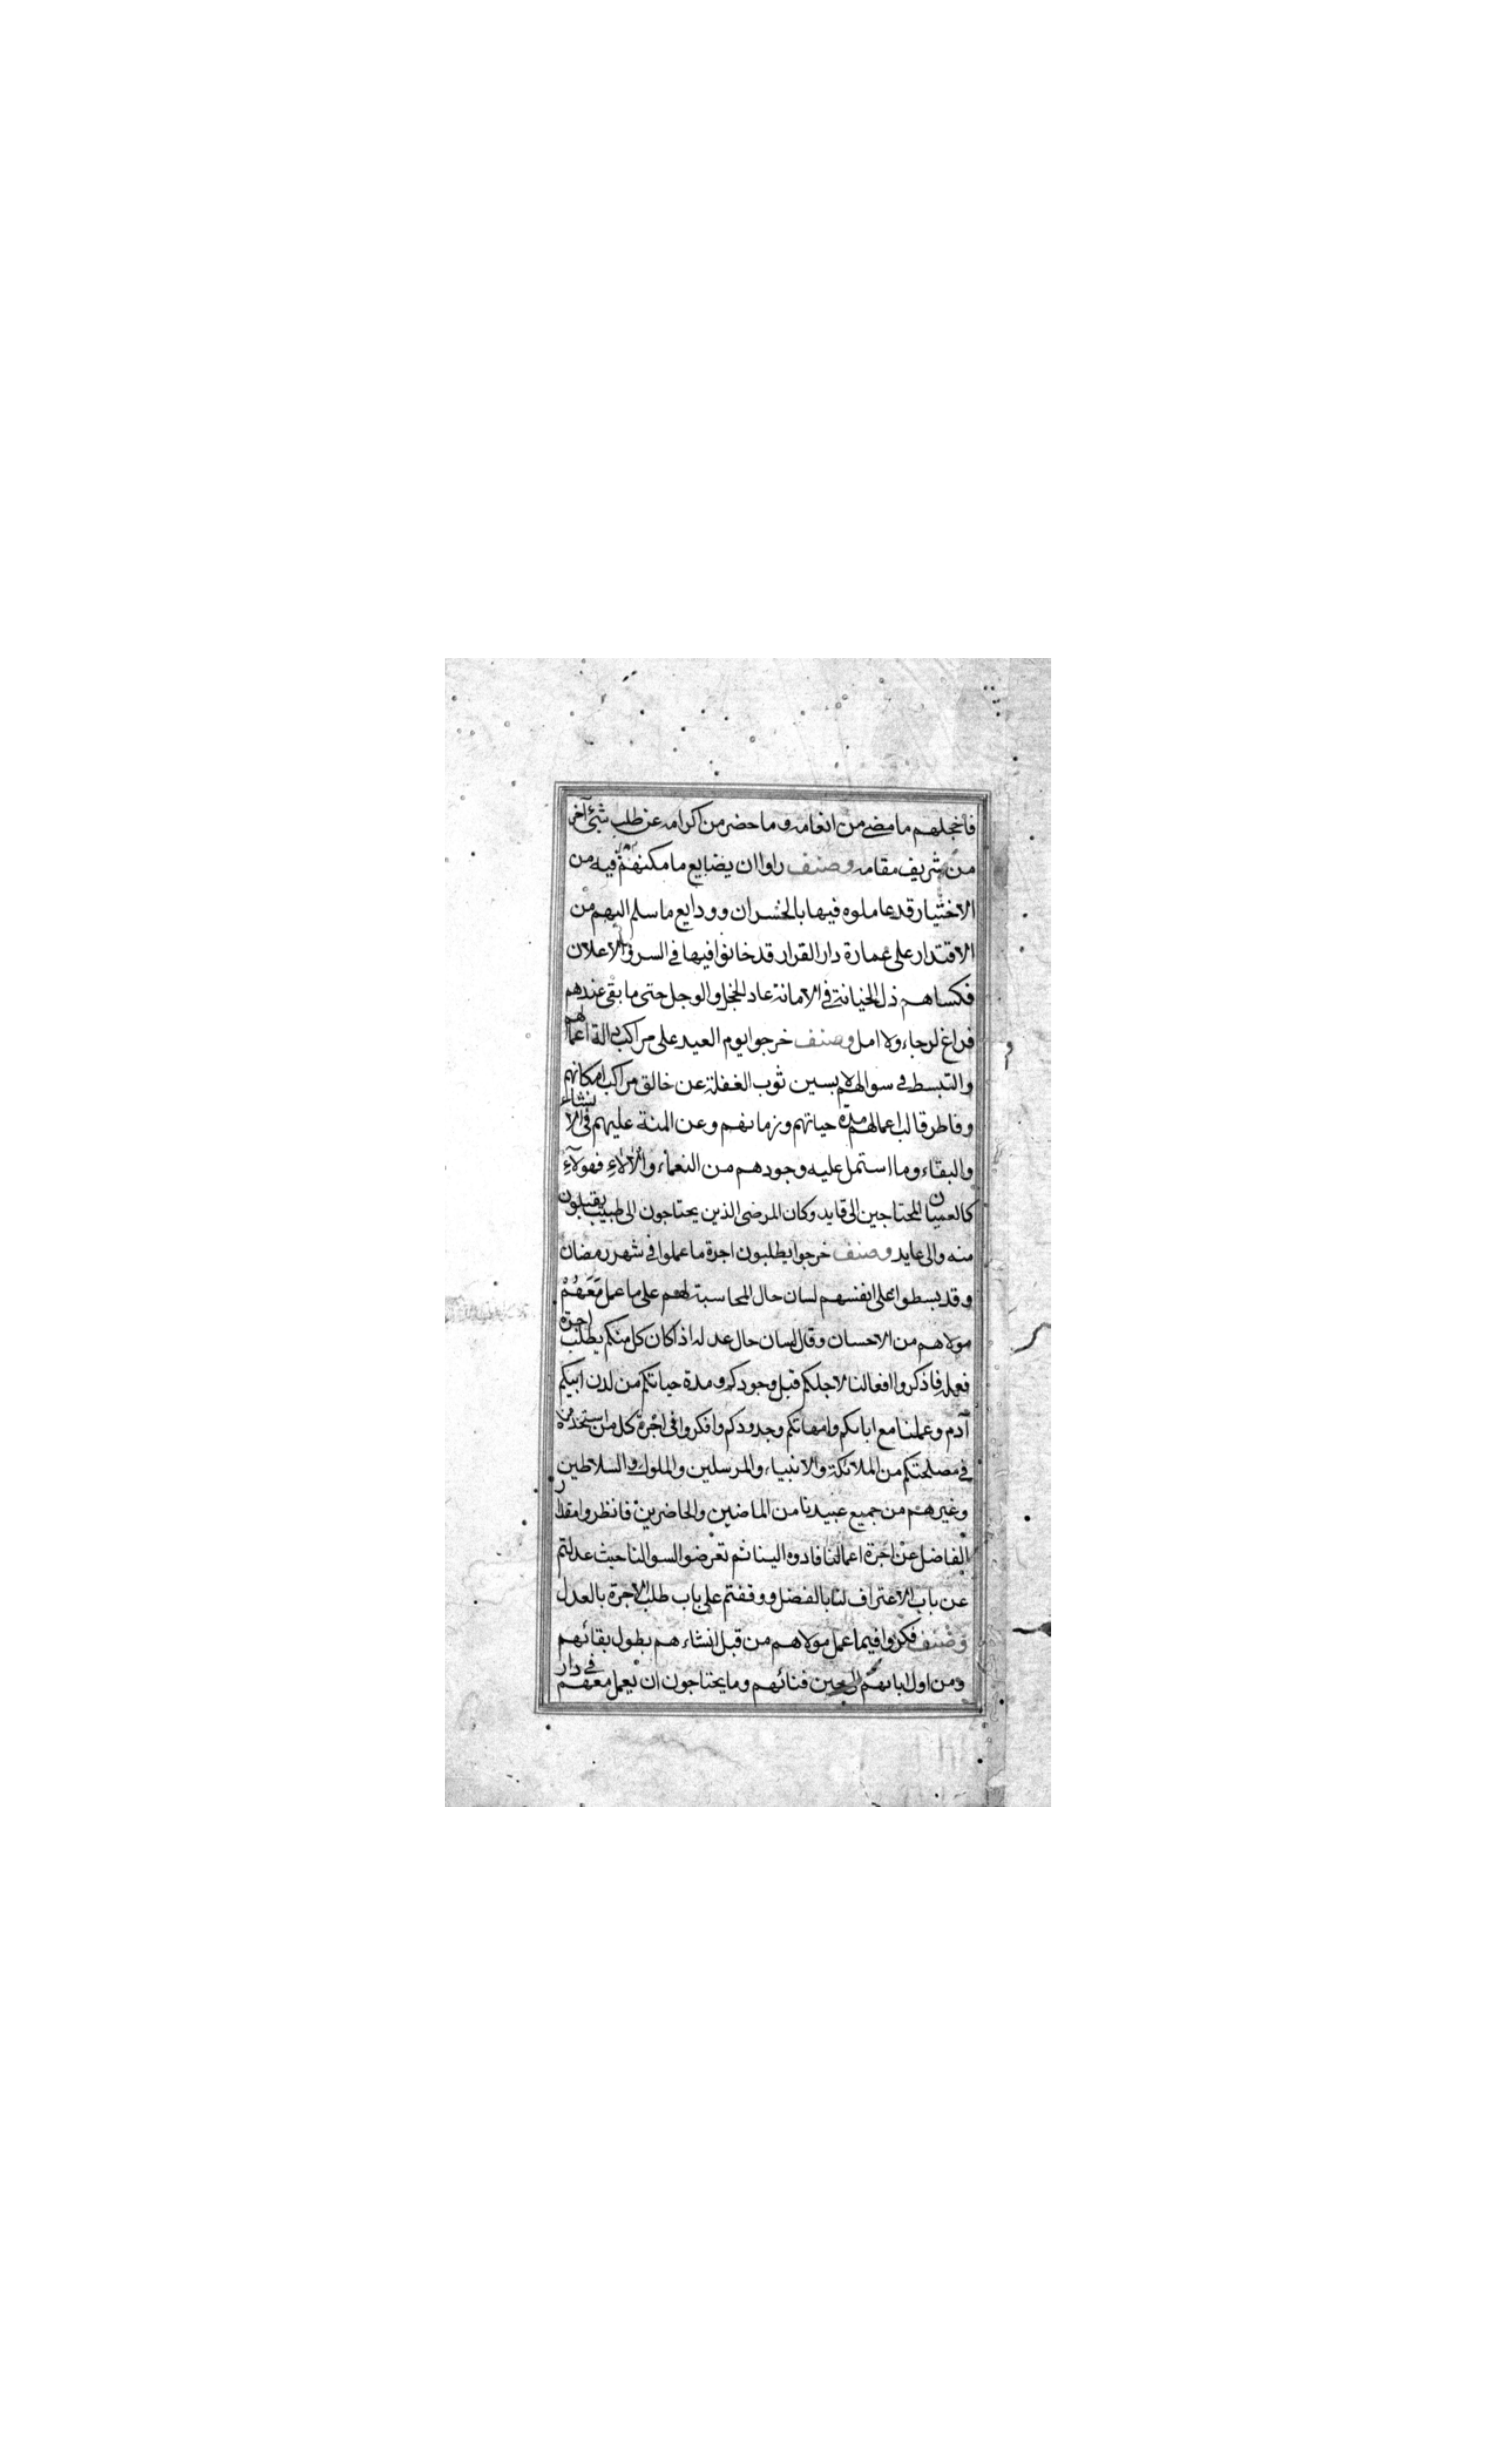 فاخجلهم ما مضى من انعامه وما حضر من اكرامه عن طلب شئ آخر
من شريف مقامه وصنف راوا ان بضايع ما مكنهم فيه من
الاختيار قد عاملوه فيها بالخسران وودايع ما سلم اليهم من
الاقتدار على عمارة دار القرار قد خانوا فيها في السر والاعلان
فكساهم ذل الخيانة في الامانة عاد الخجل والوجل حتى ما بقى عندهم
فراغ لرجاء ولا امل وصنف خرجوا يوم العيد على مراكب دالة اعمالهم
والتبسط في سوالهم لابسين ثوب الغفلة عن خالق مراكب امكانهم
وفاطر قالب اعمالهم مدة حياتهم وزمانهم وعن المنة عليهم في الانشاء
والبقاء وما اشتمل عليه وجودهم من النعماء والآلاء فهولآء
كالعميان المحتاجين الى قايد وكان المرضى الذين يحتاجون الى طبيب يقبلون
منه والى عايد وصنف خرجوا يطلبون اجرة ما عملوا في شهر رمضان
وقد بسطوا على انفسهم لسان حال المحاسبة لهم على ما عمل معهم
مولاهم من الاحسان وقال لسان حال عدله اذا كان كل منكم يطلب اجرة
فعله فاذكروا افعالنا لاجلكم قبل وجودكم ومدة حياتكم من لدن ابيكم
آدم وعملنا مع ابائكم وامهاتكم وجدودكم وافكروا في اجرة كل من استخدمناه
في مصلحتكم من الملائكة والانبياء والمرسلين والملوك والسلاطين
وغيرهم من جميع عبيدنا من الماضين والحاضرين فانظروا مقدار
الفاضل عن اجرة اعمالنا فادوه الينا ثم تعرضوا لسوالنا حيث عدلتم
عن باب الاعتراف لنا بالفضل ووقفتم على باب طلب الاجرة بالعدل
وصنف فكروا فيما عمل مولاهم من قبل انشاءهم بطول بقائهم
ومن اول ابائهم الى حين فنائهم وما يحتاجون ان يعمل معهم في دار